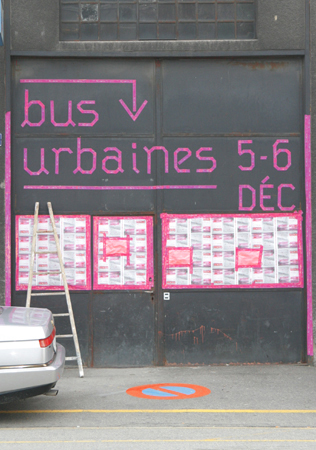 bus
urbaines 5-6
DÉC